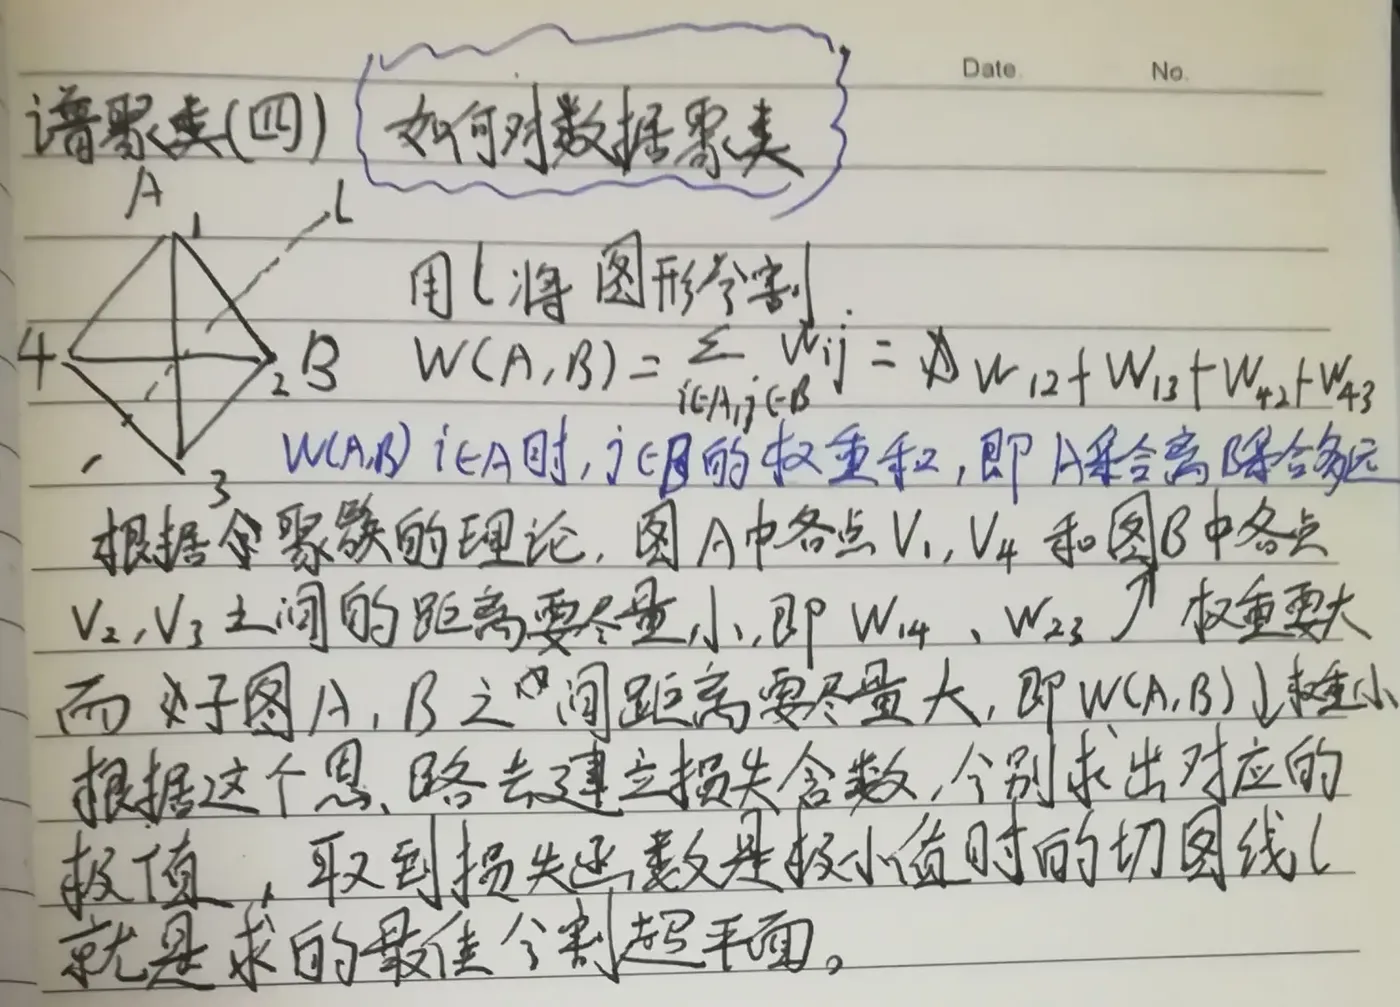 Date.
No.
谱聚类(四) 如何对数据聚类
A 1 l
用l将图形分割
4 2 B
W(A,B)=∑ Wij = W12+W13+W42+W43
i∈A,j∈B
W(A,B) i∈A时,j∈B的权重和,即A集合离B集合多远
3
根据分聚簇的理论,图A中各点V1,V4和图B中各点
V2,V3之间的距离要尽量小,即W14、W23↗权重要大
而子图A,B之间距离要尽量大,即W(A,B)↓权重小
根据这个思路去建立损失含数,分别求出对应的
极值,取到损失函数是极小值时的切图线l
就是求的最佳分割超平面。